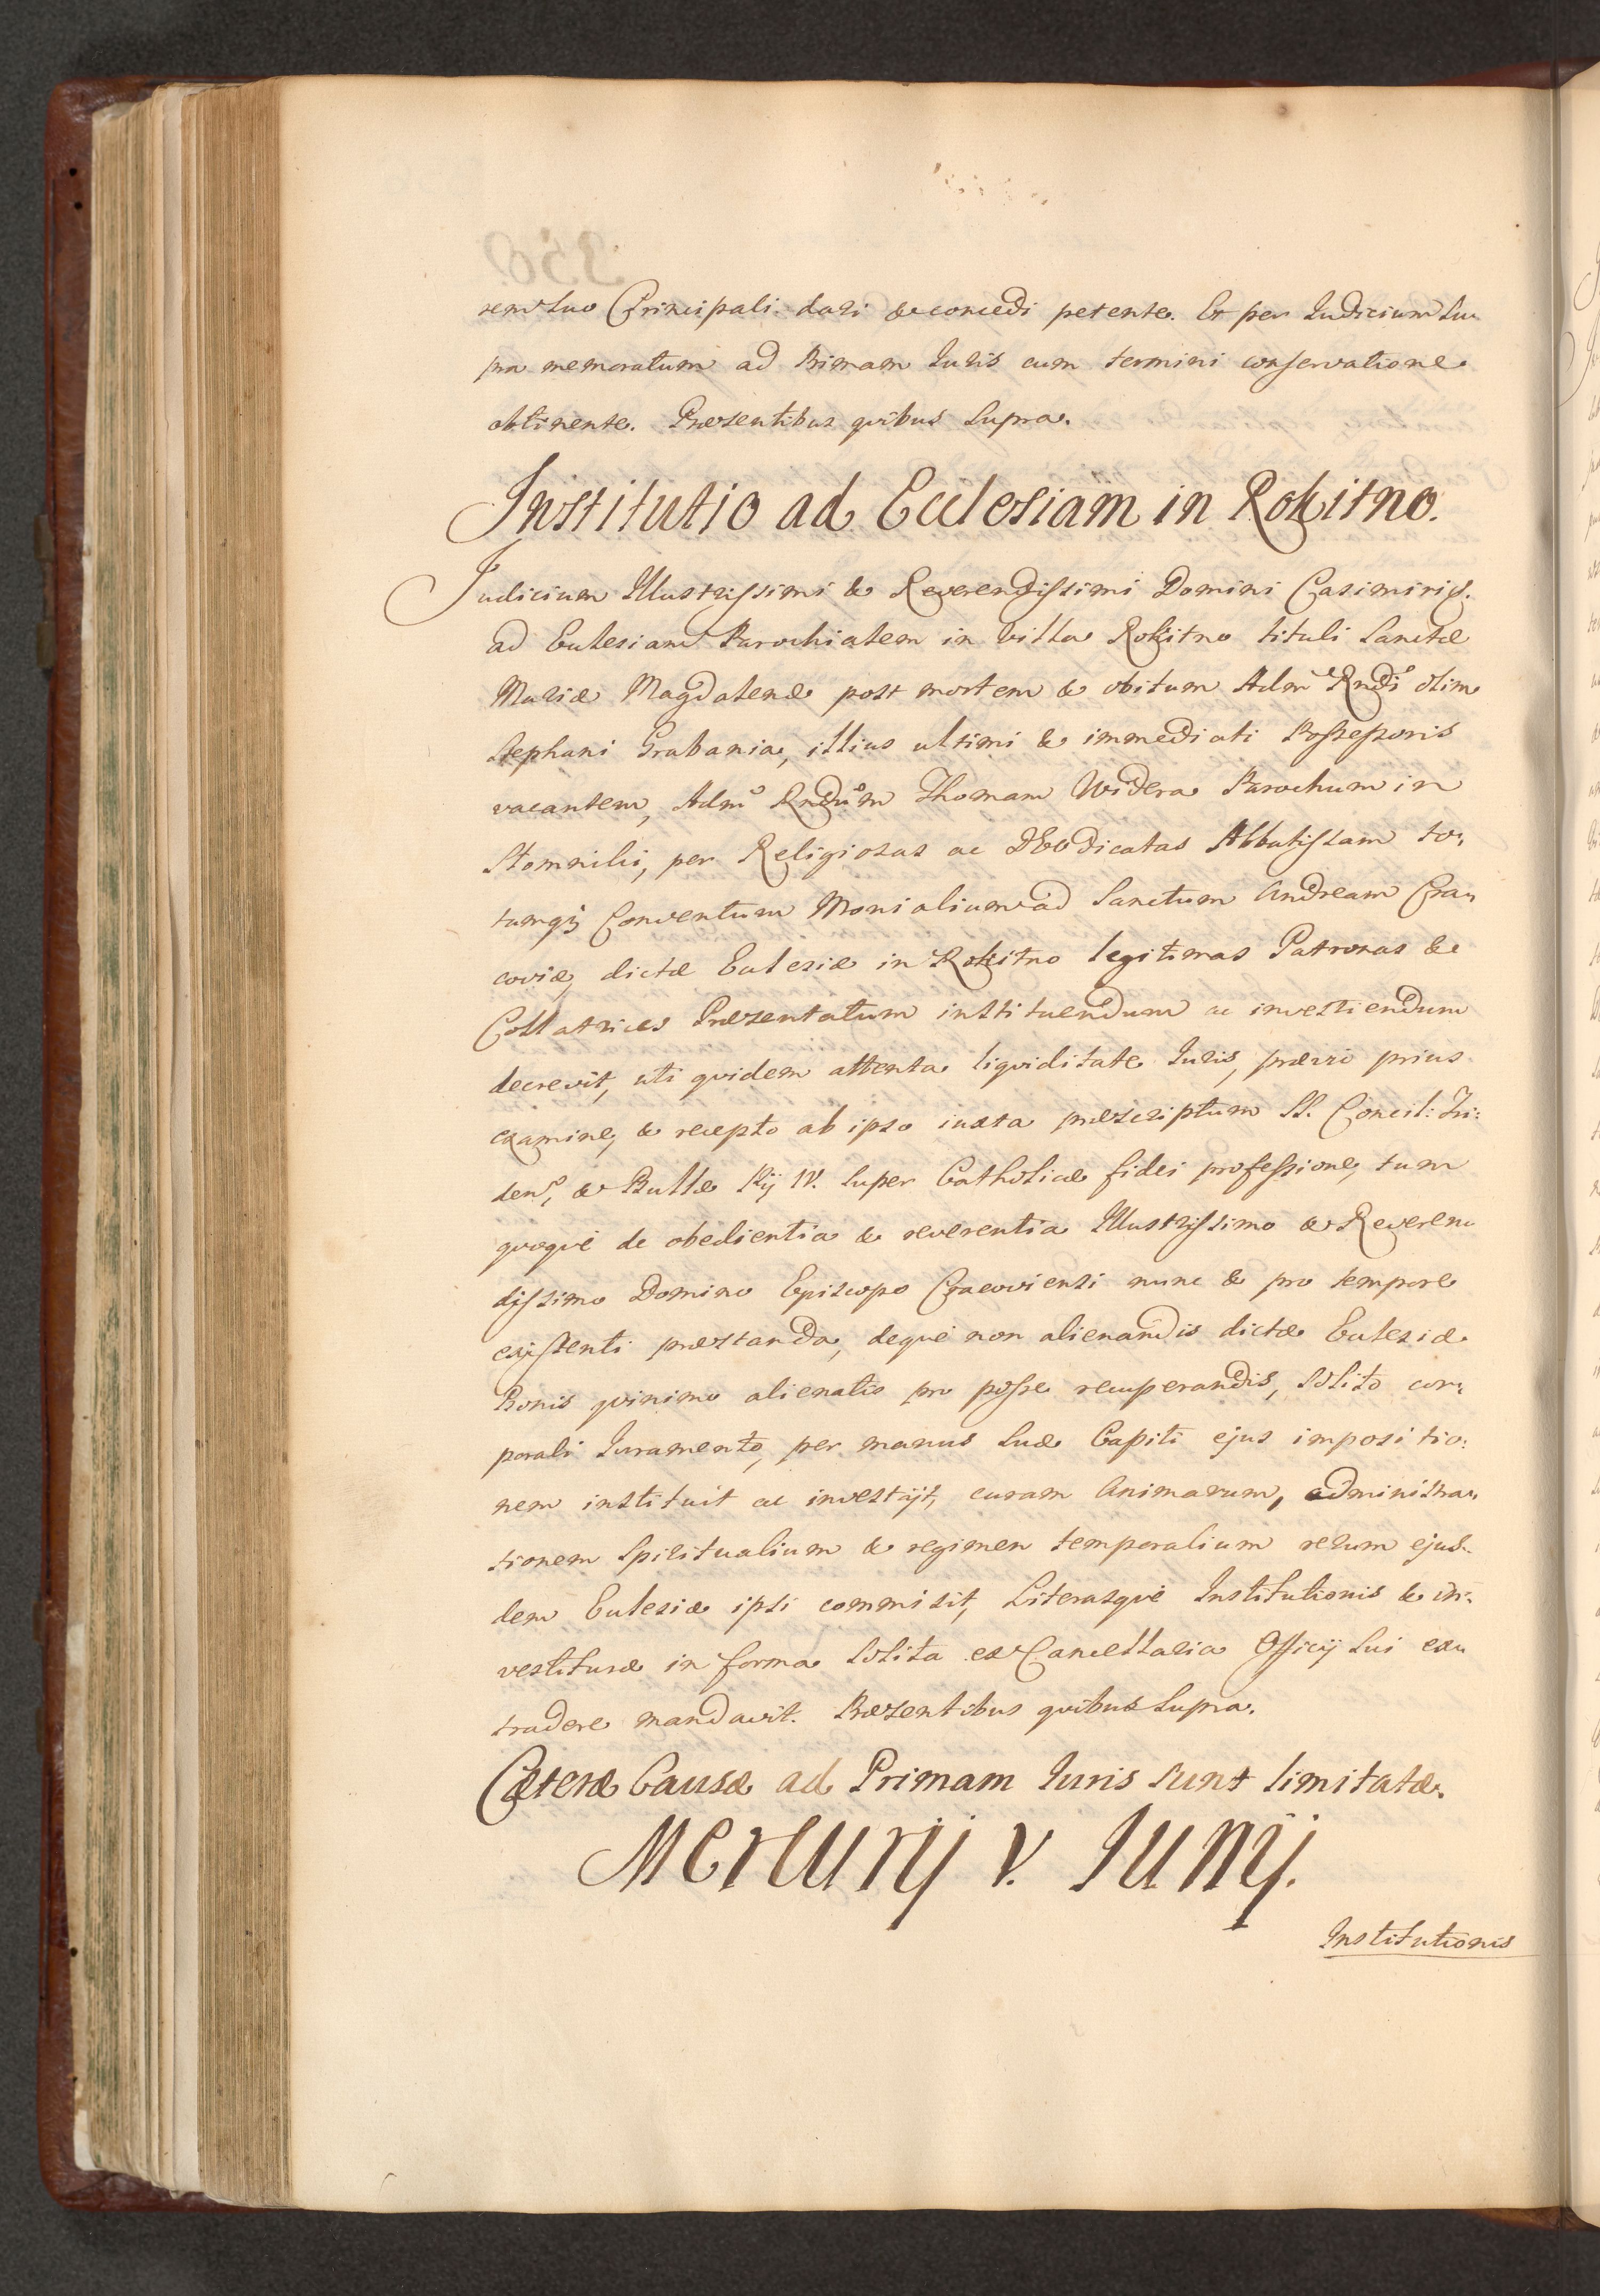 rem suo Principali dari & concedi petente. Et per Iudicium su„
pra memoratum ad Primam Iuris cum termini conservatione
obtinente. Præsentibus qvibus supra.
Institutio ad Ecclesiam in Rokitno.
Judicium Illustrissimi & Reverendissimi Domini Casimiri
ad Ecclesiam Parochialem in villa Rokitno tituli Sanctæ
Mariæ Magdalenæ post mortem & obitum Adm Rndi olim
Stephani Grabania, illius ultimi & immediati Possessoris
vacantem, Adm Rndum Thomam Widera Parochum in
Słomniki, per Religiosas ac Deo Dicatas Abbatissam to„
tumq; Conventum Monialium ad Sanctum Andream Cra„
coviæ, dictæ Ecclesiæ in Rokitno legitimas Patronas &
Collatrices Præsentatum instituendum ac investiendum
decrevit, uti qvidem attenta liqviditate Iuris, prævio prius
examine, & recepto ab ipso iuxta præscriptum SS. Concil: Tri:
den, & Bullæ Pij IV. super Catholicæ fidei professione, tum
qvoqve de obedientia & reverentia Illustrissimo & Reveren„
dissimo Domino Episcopo Cracoviensi nunc & pro tempore
existenti præstanda, deqve non alienandis dictæ Ecclesiæ
Bonis qvinimo alienatis pro posse recuperandis, solito cor„
porali Iuramento, per manus suæ Capiti ejus impositio:
nem instituit ac investijt, curam Animarum, administra„
tionem Spiritualium & regimen temporalium rerum ejus„
dem Ecclesiæ ipsi commisit, Literasqve Institutionis & in:
vestituræ in forma solita ex Cancellaria Officij sui ex„
tradere mandavit. Præsentibus qvibus supra.
Cæteræ Causæ ad Primam Iuris sunt limitatæ.
Mercurij V. Junij.
Institutionis